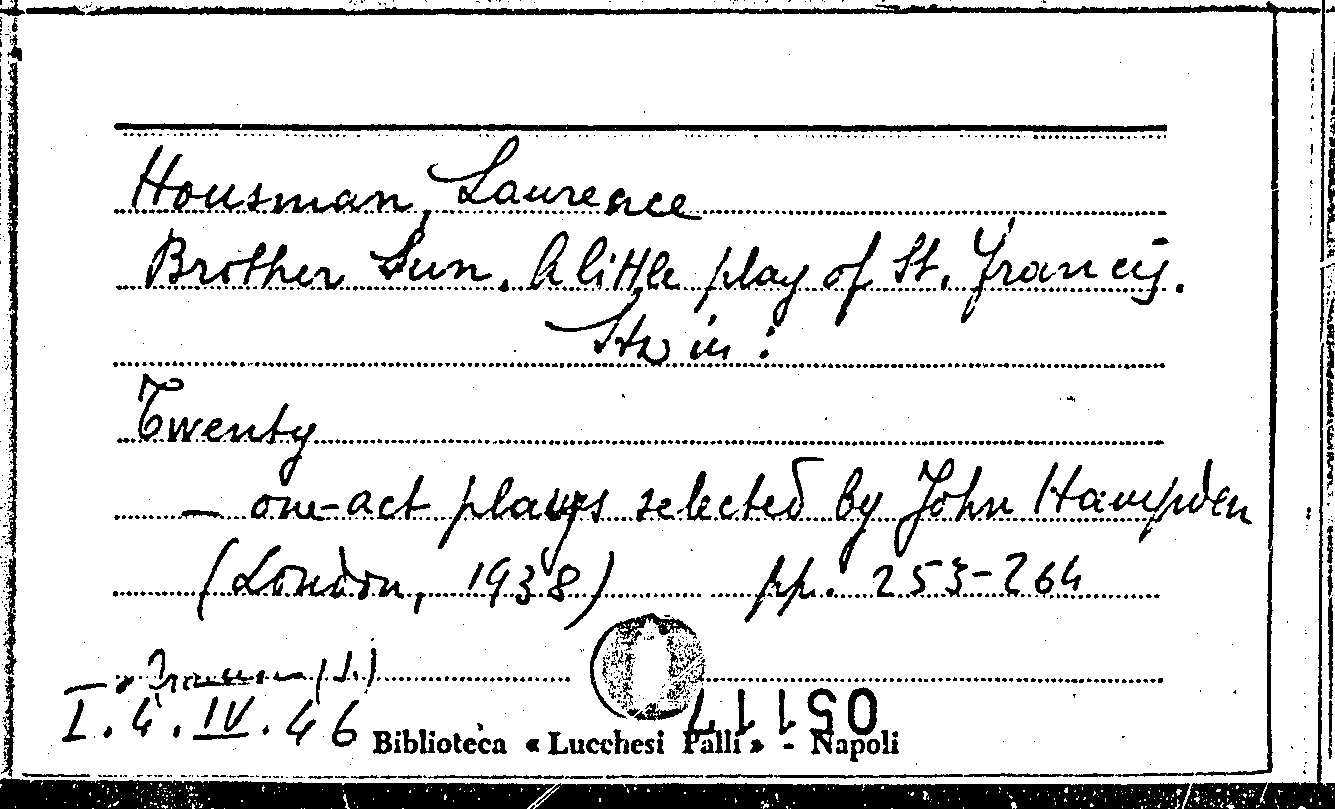 Housman, Laurence
Brother Sun. A little play of St. Francis.
Sta in:
Twenty
— one-act plays selected by John Hampden
(London, 1938) pp. 253-264
(S.)
I.4.IV.46
05117
Biblioteca « Lucchesi Palli » - Napoli